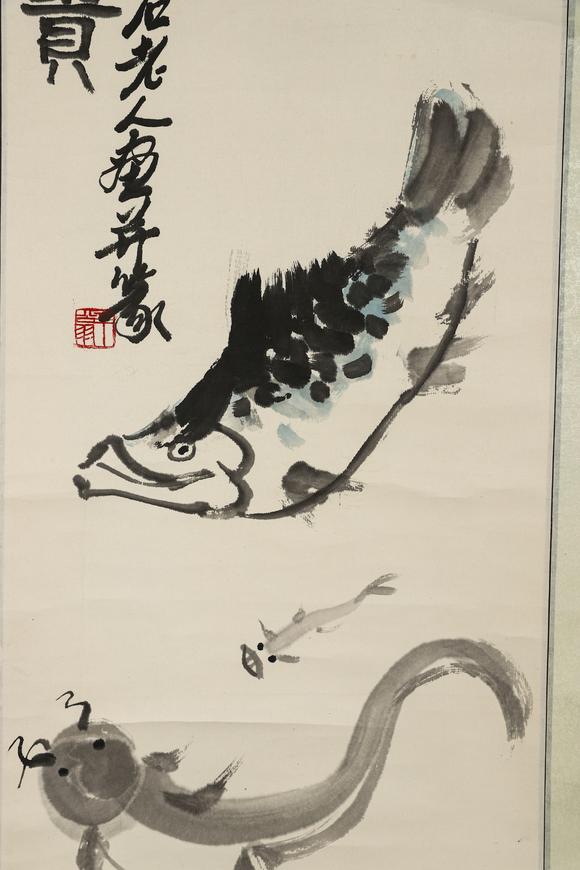 貴
石老人畫并篆